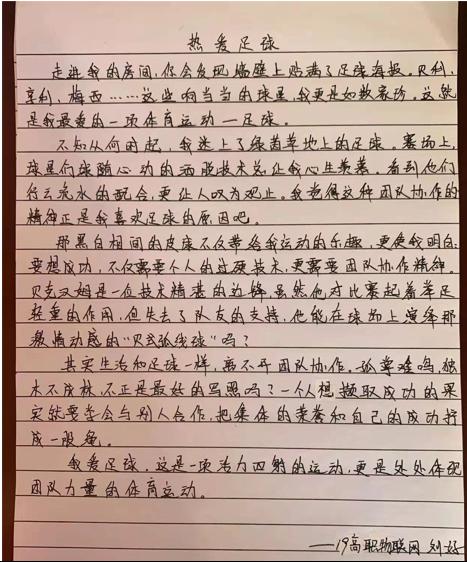 热爱足球
走进我的房间,你会发现墙壁上贴满了足球海报。贝利,
亨利,梅西……这些响当当的球星,我更是如数家珍。这就
是我最爱的一项体育运动—足球。
不知从何时起,我迷上了绿茵草地上的足球。赛场上,
球星们球随心动的洒脱技术总让我心生羡慕。看到他们
行云流水的配合,更让人叹为观止。我觉得这种团队协作的
精神正是我喜欢足球的原因吧。
那黑白相间的皮球不仅带给我运动的乐趣,更使我明白:
要想成功,不仅需要个人的过硬技术,更需要团队协作精神。
贝克汉姆是一位技术精湛的边锋,虽然他对比赛起着举足
轻重的作用,但失去了队友的支持,他能在球场上演绎那
极情动感的“贝式弧线球”吗?
其实生活和足球一样,离不开团队协作。孤掌难鸣,独
木不成林,不正是最好的写照吗?一个人想撷取成功的果
实就要学会与别人合作,把集体的荣誉和自己的成功拧
成一股绳。
我爱足球,这是一项活力四射的运动,更是处处体现
团队力量的体育运动。
——19高职物联网 刘好